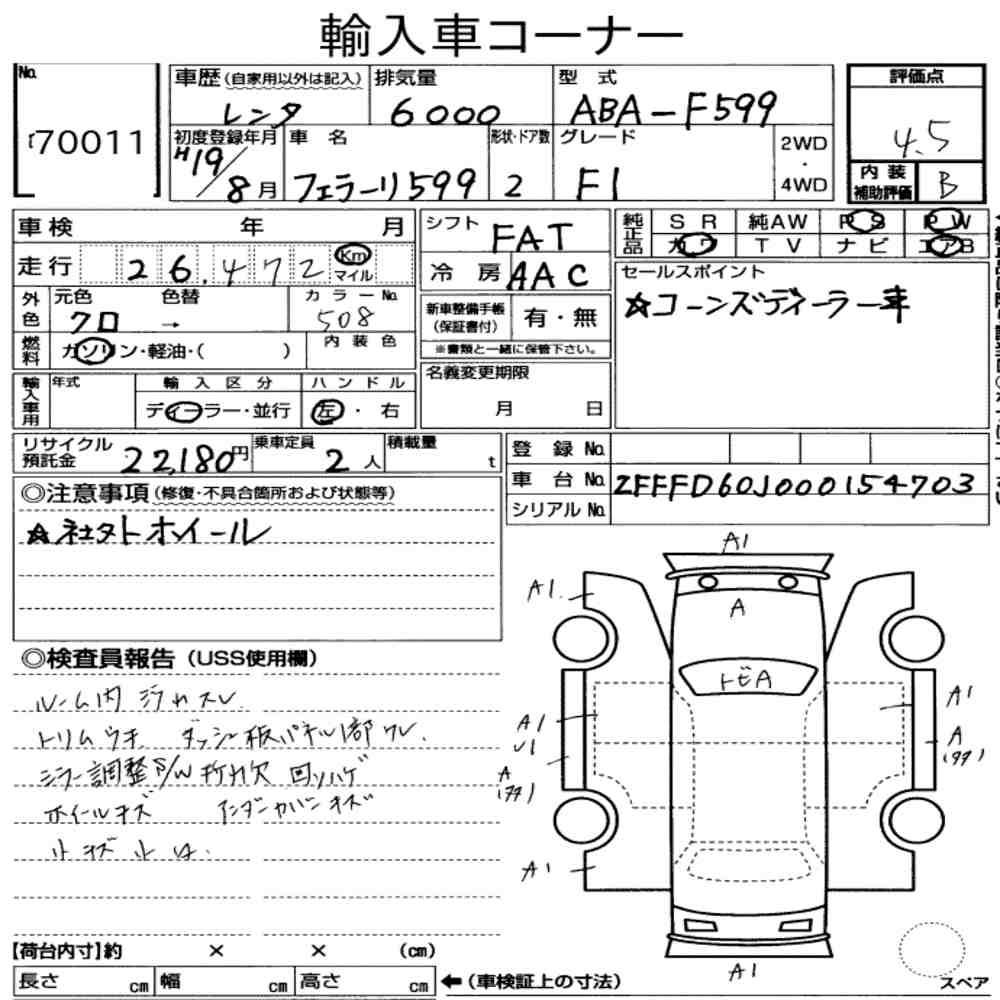 輸入車コーナー
No.
70011
車歴(自家用以外は記入)
レンタ
排気量
6000
型 式
ABA-F599
評価点
4.5
内装
補助評価
B
初度登録年月
H19/8月
車 名
フェラーリ599
形状・ドア数
2
グレード
F1
2WD
・
4WD
車検 年 月
走行 26,472 Km
マイル
シフト
FAT
冷 房
AAC
純正品
SR 純AW PS PW
カワ TV ナビ エアB
セールスポイント
☆コーンズディーラー車
外色
元色 色替
クロ →
カラーNo.
508
燃料
ガソリン・軽油・( )
内装色
新車整備手帳
(保証書付)
有・無
※書類と一緒に保管下さい。
輸入車用
年式
輸入区分
ディーラー・並行
ハンドル
左・右
名義変更期限
月 日
リサイクル
預託金
22,180円
乗車定員
2人
積載量
t
登 録 No.
車 台 No. ZFFFD60J000154703
シリアル No.
◎注意事項(修復・不具合箇所および状態等)
☆社外ホイール
◎検査員報告(USS使用欄)
ルーム内汚れスレ
トリムウキ ダッシュ板パネル1部ワレ.
ミラー調整S/W折れ欠 回リハゲ
ホイールキズ アンダーカバーキズ
小キズ小凹.
A1
A1.
A
トビA
A1
A1
A
A
A1
A1
【荷台内寸】約 × × (cm)
長さ cm 幅 cm 高さ cm
←(車検証上の寸法)
スペア